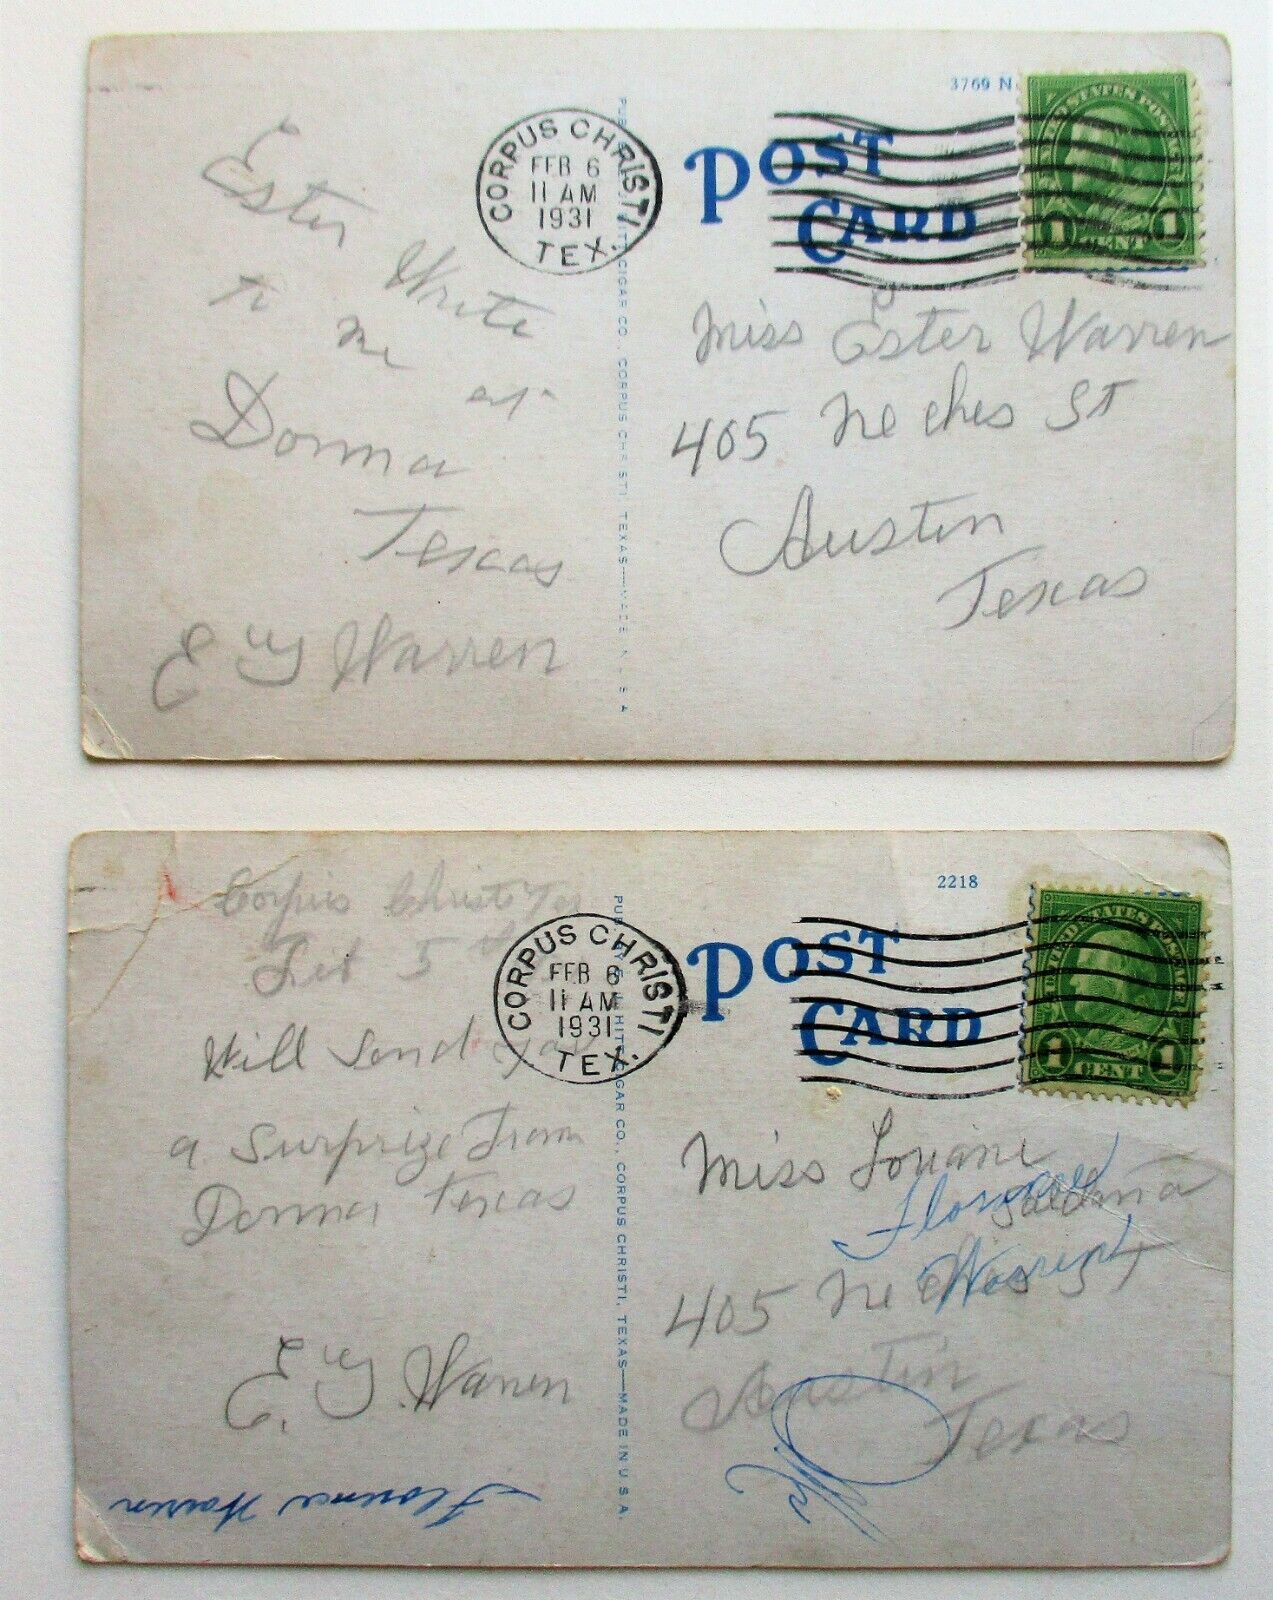 3769 N
CORPUS CHRISTI
FEB 6
11 AM
1931
TEX.
POST
CARD
UNITED STATES POSTAGE
1 CENT 1
Ester
Write
to
me
at
Donna
Texas
E Y Warren
CIGAR CO., CORPUS CHRISTI, TEXAS—MADE IN U.S.A
Miss Ester Warren
405 Neches St
Austin
Texas
2218
CORPUS CHRISTI
FEB 6
11 AM
1931
TEX.
POST
CARD
UNITED STATES POSTAGE
1 CENT 1
Corpus Christi Tex
5
Will Send you
a Surprize From
Donna Texas
E. Y. Warren
Florence Warren
CIGAR CO., CORPUS CHRISTI, TEXAS—MADE IN U.S.A.
Miss Louane
Florence
Warren
405 Neches St
Austin
Texas